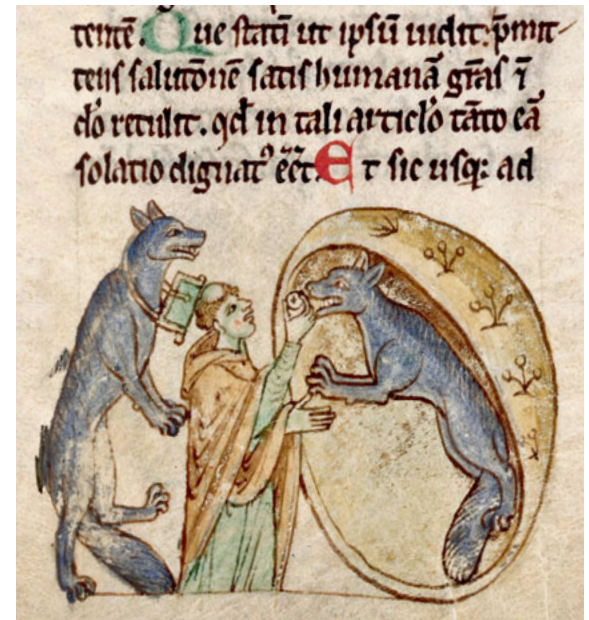 tentē. Que statī ut ipsū uidit: p̄mit-
tens salutōnē satis humanā grās ī
dō retulit. qd̄ in tali articlō tātō eā
solatio dignatꝰ eēt. Et sic usq; ad